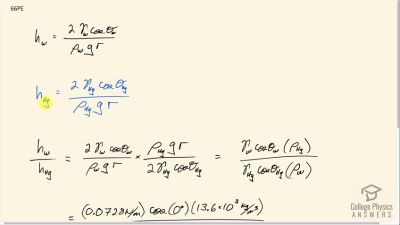 66PE
h_w = 2 γ_w cosθ_w / ρ_w g r
h_Hg = 2 γ_Hg cosθ_Hg / ρ_Hg g r
h_w / h_Hg = 2 γ_w cosθ_w / ρ_w g r × ρ_Hg g r / 2 γ_Hg cosθ_Hg = γ_w cosθ_w (ρ_Hg) / γ_Hg cosθ_Hg (ρ_w)
= (0.0728 N/m) cos(0°) (13.6×10³ kg/m³)
College Physics
ANSWERS